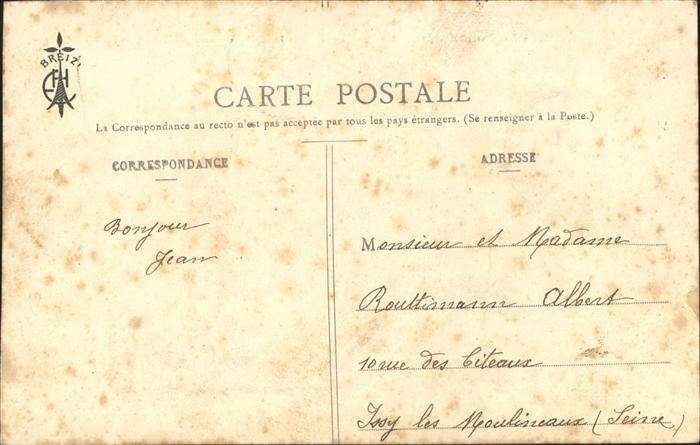 BREIZ
CARTE POSTALE
La Correspondance au recto n'est pas acceptée par tous les pays étrangers. (Se renseigner à la Poste.)
CORRESPONDANCE
ADRESSE
Bonjour
Jean
Monsieur et Madame
Routtimann Albert
10 rue des Citeaux
Issy les Moulineaux (Seine)